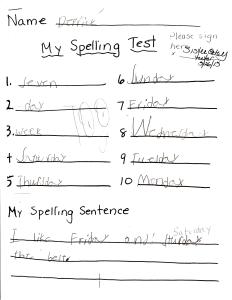 Name Derrick
Please sign
here
My Spelling Test
1. seven
2 day
3. week
4
5
6 Sunday
7 Friday
8 Wednesday
9
10 Monday
100
My Spelling Sentence
Saturday
I like Friday and
the best.